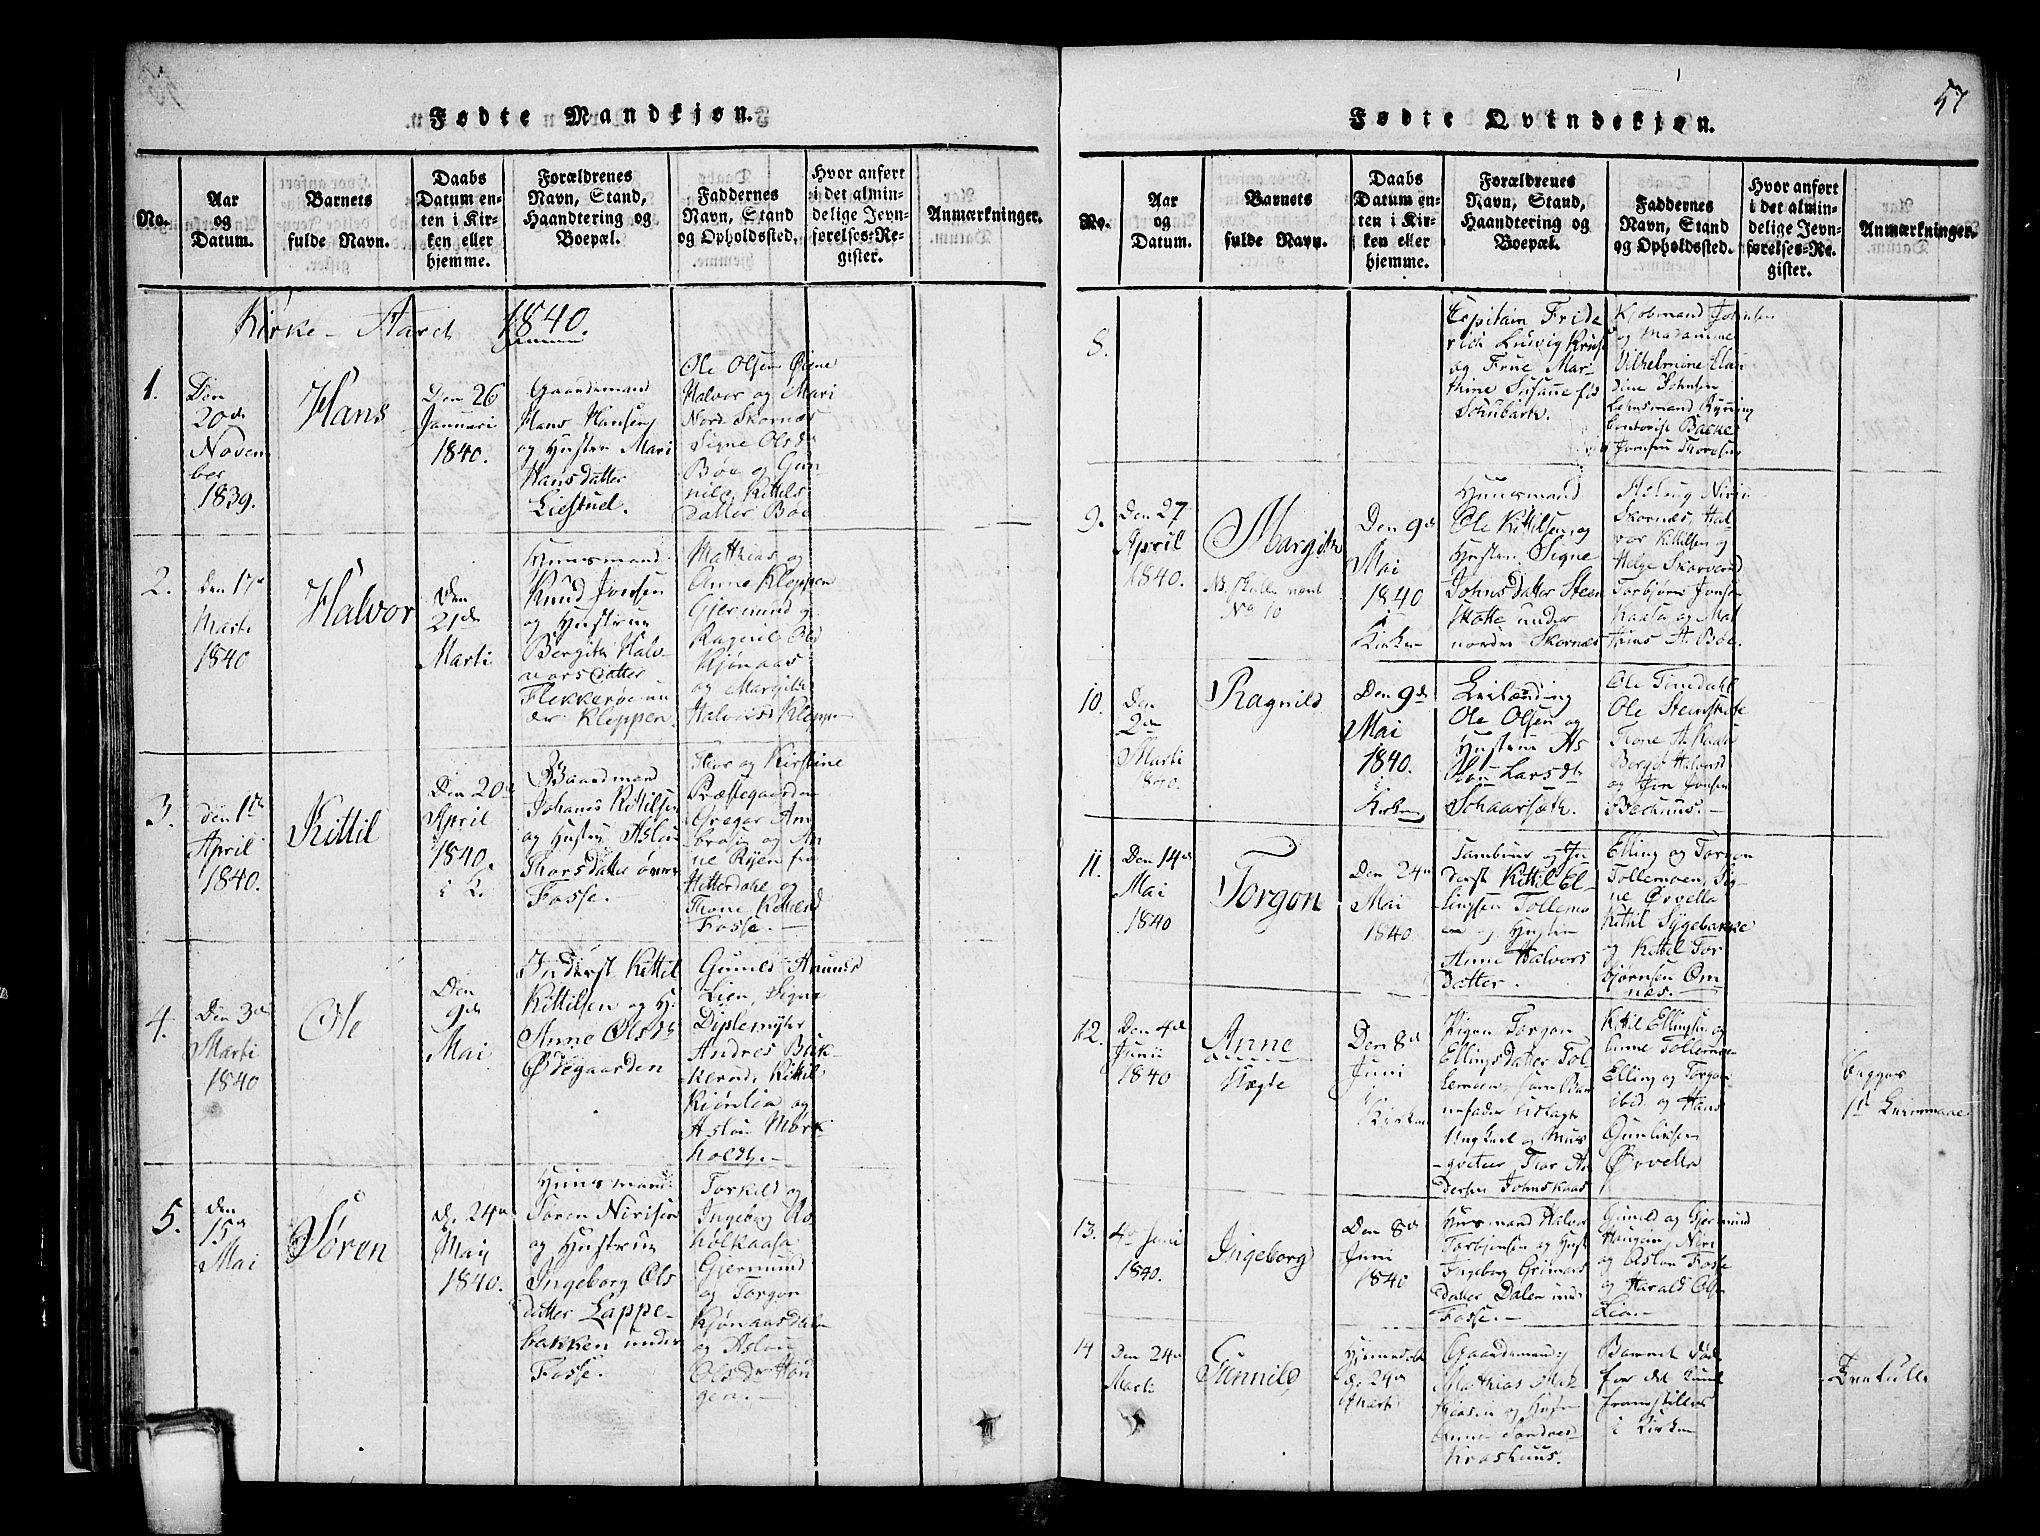 57
Fødte Mandkjøn.
No.
Aar
og
Datum.
Barnets
fulde Navn.
Daabs
Datum en-
ten i Kir-
ken eller
hjemme.
Forældrenes
Navn, Stand,
Haandtering og
Boepæl.
Faddernes
Navn, Stand
og Opholdssted.
Hvor anført
i det almin-
delige Jevn-
førelses-Re-
gister.
Anmærkninger.
Kirke-Aaret 1840.
1.
Den
20de
Novem
ber
1839.
Hans
Den 26
Januari
1840.
Gaardemand
Hans Hansen
og Hustru Mari
Hansdatter
Liestuel.
Ole Olsen
Halvor og Mari
Nord Skornæs
Signe Olsdr
Bøe og Gun
nild Kittels
datter Bøe
2.
Den 17de
Marti
1840
Halvor
Den
21de
Marti
Huusmand
Knud Jonsen
og Hustrue
Bergith Hal
vorsdatter
Flekkerøe un
der Kleppen.
Matthias og
Anne Kleppen
Gjermund og
Ragnil
Kjønaas
og Margith
Halvorsd Kleppen
3.
den 1ste
April
1840.
Kittil
Den 20de
April
1840.
i K.
Gaardmand
Johanes Kittilsen
og Hustru Aslou
Thorsdatter øvre
Fosse.
Thor og Kirstine
Præstegaarden
Gregar Am
brosen og An
ne Ryen fra
Hitterdahl og
Tone Kittilsd
Fosse.
4.
Den 3de
Marti
1840
Ole
Den
9de
Mai
Inderst Kittil
Kittilsen og H:
Anne Olsdr
Ødegaarden
Gunild
Lien, Signe
Diplemyhr
Andres Buk
Kittil
Kjønlia og
Aslou Mørk
holdt.
5.
den
15de
Mai
Søren
d. 24de
Maij
1840.
Huusmand
Søren Nirisen
og Hustrue
Ingeborg Ols
datter Lappe-
bakken under
Fosse.
Torkild og
Ingeborg
Gjermund
og Torgon
Kjønaasdalen
og Aslou
Olsdr Hou
gen.
Fødte Qvindekjøn.
No.
Aar
og
Datum.
Barnets
fulde Navn.
Daabs
Datum en-
ten i Kir-
ken eller
hjemme.
Forældrenes
Navn, Stand,
Haandtering og
Boepæl.
Faddernes
Navn, Stand
og Opholdssted.
Hvor anført
i det almin-
delige Jevn-
førelses-Re-
gister.
Anmærkninger.
8.
Capitain Fride
rich Ludvig
og Frue Mar
thine Susane fød
Schubarth.
Kjøbmand Johnsen
og Madamme
Vilhelmine Clau
dine Johnsen
Lehnsmand
9.
Den 27
April
1840.
Margith
No 10
Den 9de
Mai
1840
i
Kirken
Huusmand
Ole Kittilsen og
Hustru Signe
Johnsdatter Steen
stotte under
nordre Skornæs
Aslaug
Skornæs, Hal
vor Kittilsen og
Helge
Torbjørn Jonsen
Kaasa og Mat
10.
Den
2de
Marti
1840.
Ragnild
Den 9de
Mai
1840.
i
Kirken
Leilænding
Ole Olsen og
Hustrue As
lou Larsdr
Schaarseth.
Ole Tinndahl
Ole Steinstotte
Tone
Halvorsd
og Jon Jonsen
Bechuus.
11.
Den 14de
Mai
1840
Torgon
Den 24de
Mai
1840
Tambour og In
derst Kittil El
lingsen Tollemo
en og Hustru
Anne Halvors
datter.
Elling og Torgon
Tollemoen, Sig
ne Ørvella
Kittil Sygebakke
og Kittil Tor
bjørnsen Om
næs.
12.
Den 4de
Junii
1840
Anne
Uægte
Den 8de
Juni
i
Kirken
Pigen Torgon
Ellingsdatter Tol
lemoen, som Bar
nefader udlagt
Ungkarl og Mus
qveteer Thor An
dersen Johnskaas
Kittil Ellingsen og
Anne Tollemoen
Elling og Torgon
ibid. og Hans
Gunleiksen
Ørvella
Begges
1ste Leiermaal
13.
4de Juni
1840.
Ingeborg
Den 8de
Juni
1840
Huusmand Halvor
Torbjønsen og Hust
Ingeborg Greimers
datter Dalen und
Fosse.
Gunild og Gjermund
Haugan, Niri
og Aslou Fosse
og Harald Olsen
Lia.
14
Den 24de
Marti
Gunnild
Hjemmedøbt
d. 24de
Marti
Gaardemand
Mathias Mat
hiasen og Hustru
Anne
Kraashuus.
Barnet døde
før det kunde
fremstilles
i Kirken